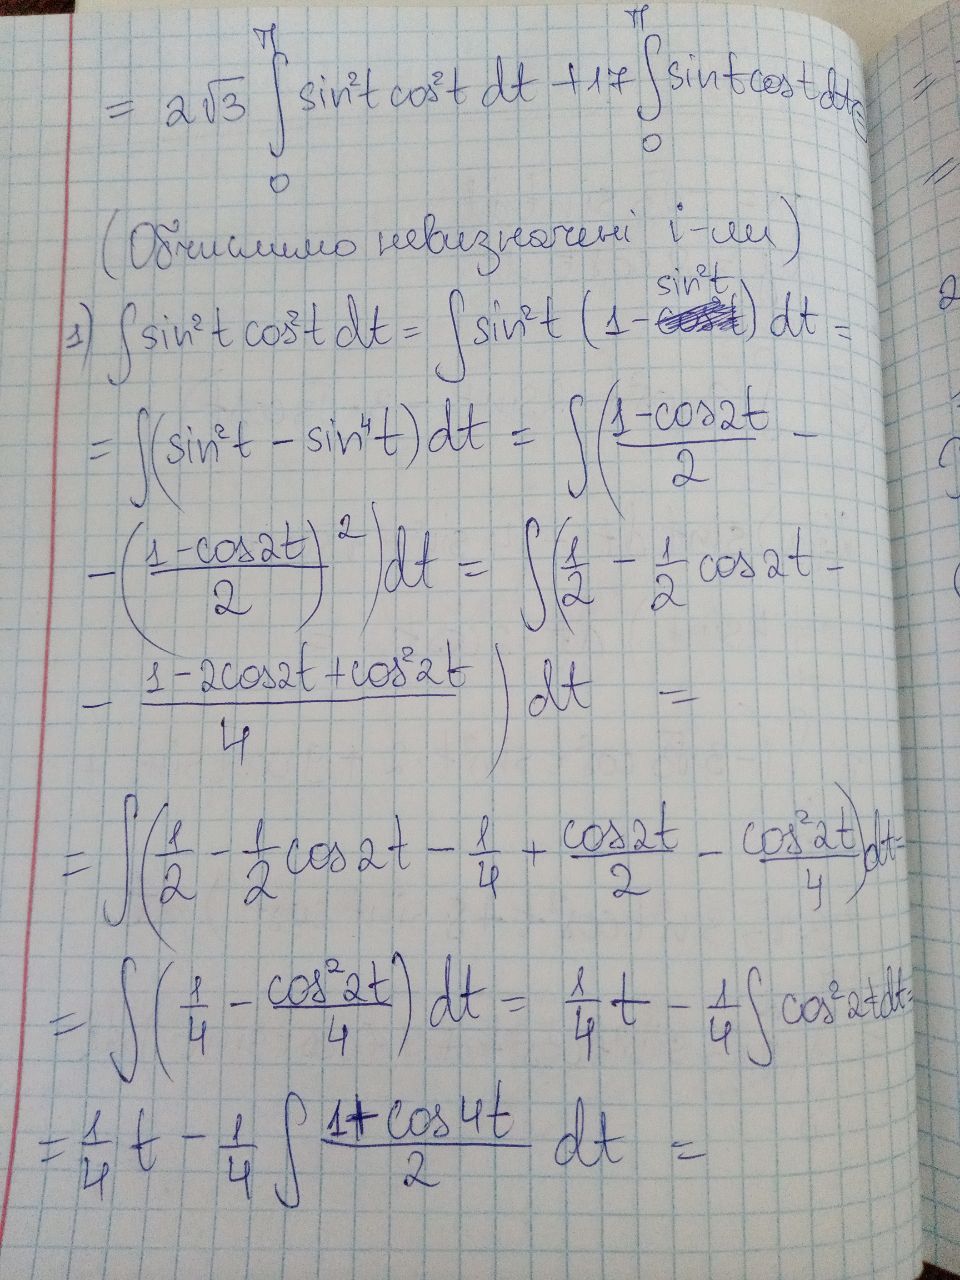 = 2√3 ∫₀^π sin²t cos²t dt + 17 ∫₀^π sin t cos t dt =
(Обчислимо невизначені і-ли)
1) ∫ sin²t cos²t dt = ∫ sin²t (1 - sin²t) dt =
= ∫(sin²t - sin⁴t) dt = ∫((1-cos2t)/2 -
- ((1-cos2t)/2)²)dt = ∫(1/2 - 1/2 cos2t -
- (1-2cos2t+cos²2t)/4) dt =
= ∫(1/2 - 1/2 cos2t - 1/4 + cos2t/2 - cos²2t/4)dt =
= ∫(1/4 - cos²2t/4) dt = 1/4 t - 1/4 ∫ cos²2t dt =
= 1/4 t - 1/4 ∫ (1+cos4t)/2 dt =